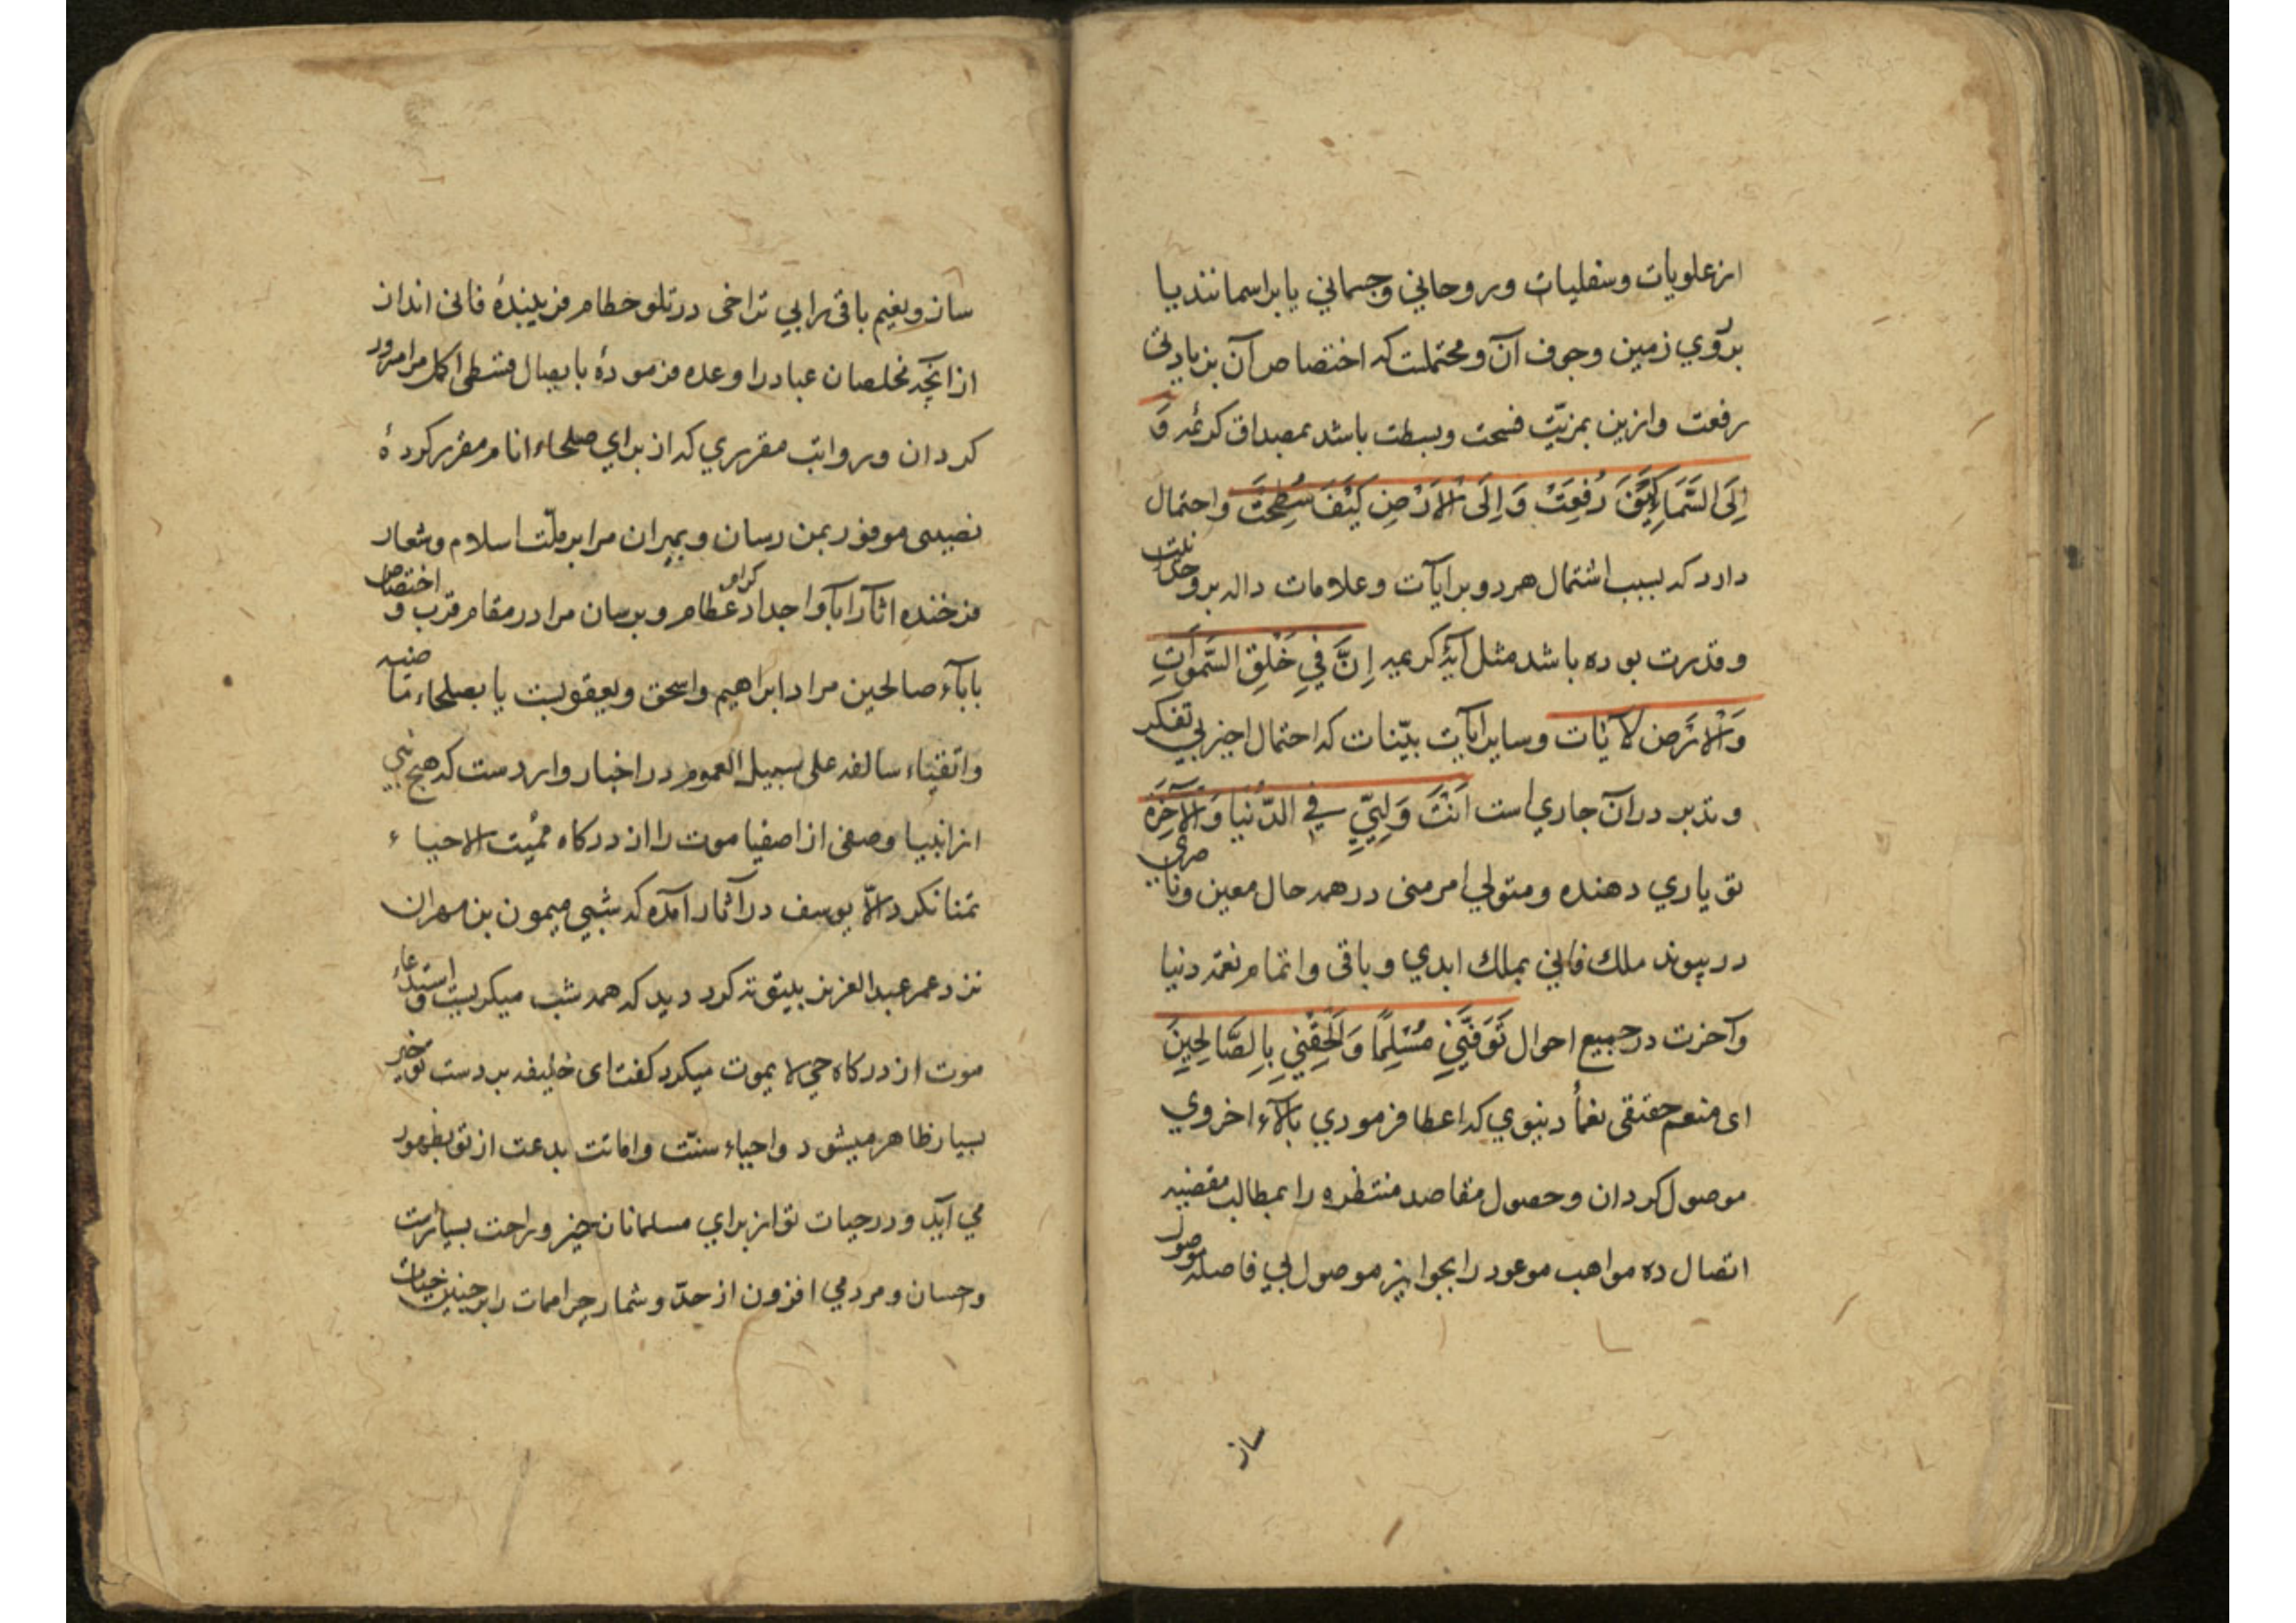 از علويات وسفليات وروحاني وجسماني يا براسمانند يا
بروي زمين وجوف آن ومحتملست كه اختصاص آن بزيادتى
رفعت وازين بمزيّت فسحت وبسطت باشد بمصداق كريمه وَ
اِلَى السَّمَاءِ كَيْفَ رُفِعَتْ وَاِلَى الْاَرْضِ كَيْفَ سُطِحَتْ واحتمال
دارد كه بسبب اشتمال هر دو بر آيات وعلامات داله بر وحدانيت
وقدرت بوده باشد مثل آيهٔ كريمه اِنَّ فِي خَلْقِ السَّمَوَاتِ
وَالْاَرْضِ لَآيَات وساير آيات بيّنات كه احتمال اجير بي تفكر
وتدبر در آن جاري است اَنْتَ وَلِيِّي فِي الدُّنْيَا وَالْآخِرَةِ
تو ياري دهنده ومتولي امر منى در همه حال معين وناصرى
در پيوند ملك فاني بملك ابدي وباقى واتمام نعمه دنيا
وآخرت در جميع احوال تَوَفَّنِي مُسْلِمًا وَاَلْحِقْنِي بِالصَّالِحِينَ
اى منعم حقيقى نعمأ دنيوي كه اعطا فرمودي بآلاء اخروي
موصول كردان وحصول مقاصد منتظره را بمطالب مقضيه
اتصال ده مواهب موعود را بجوايز موصول بي فاصله موصول
ساز
ساز ونعيم باقى را بي تراخى در تلو حطام فريبندهٔ فانى انداز
از آنچه مخلصان عباد را وعده فرمودهٔ بايصال قسطى اكمل مرا مسرور
كردان ورواتب مقرري كه از براي صلحاء انام مقرر كردهٔ
نصيبى موفور بمن رسان وبميران مرا بر ملّت اسلام وشعار
فرخنده اثار ابآ واجداد عظام كرام وبرسان مرا در مقام قرب واختصاص
بابآء صالحين مراد ابراهيم واسحق ويعقوبست يا بصلحاء ماضيه
واتقياء سالفه على سبيل العموم در اخبار وارد ست كه هيچ نبي
از انبيا وصفى از اصفيا موت را از دركاه مميت الاحياء
تمنا نكرد الّا يوسف در آثار آمده كه شبي ميمون بن مهران
نزد عمر عبد العزيز بيتوته كرد ديد كه همه شب ميكريست واستدعاء
موت از دركاه حي لا يموت ميكرد كفت اى خليفه بر دست تو خير
بسيار ظاهر ميشود واحياء سنّت واماتت بدعت از تو بظهور
مي آيد ودر حيات تو از براي مسلمانان خير وراحت بسيارست
وحسان ومردمي افزون از حدّ وشمار چرا ممات را بر چنين حيات